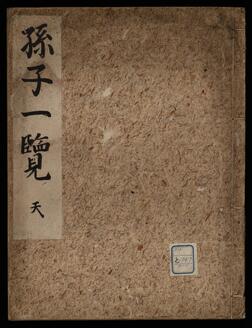 孫子一覽
天